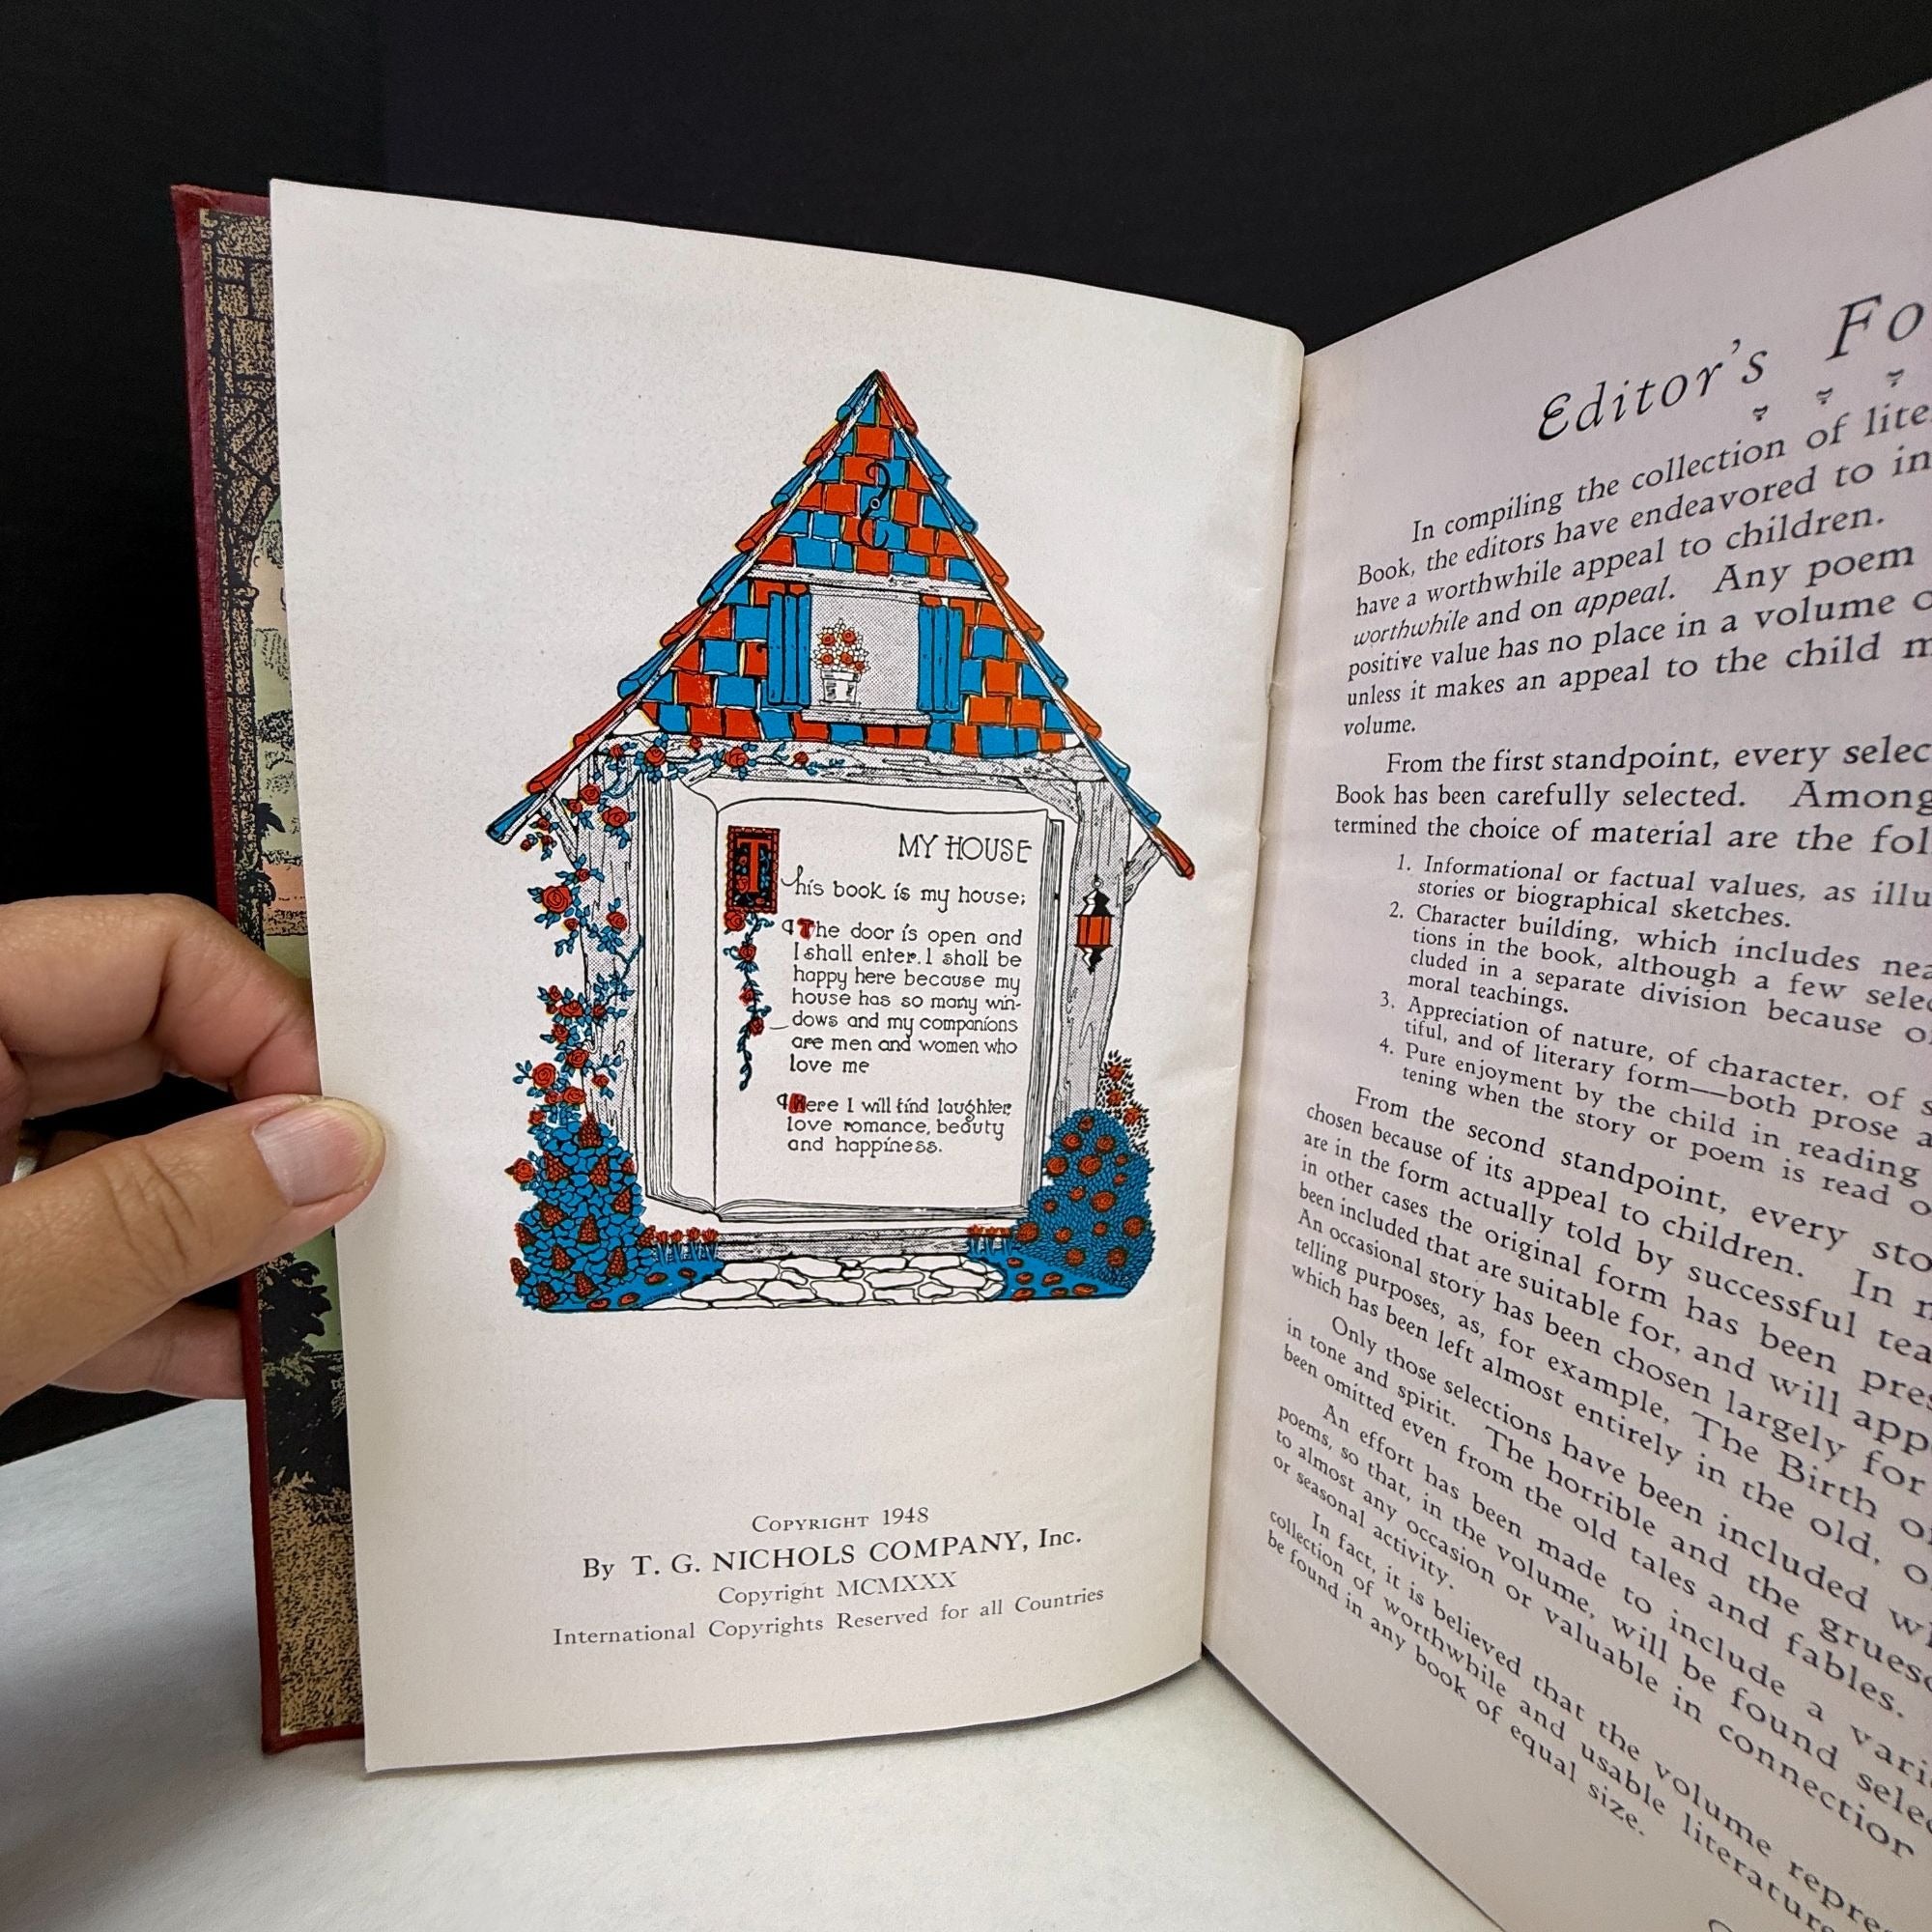 MY HOUSE
This book is my house;
¶The door is open and
I shall enter. I shall be
happy here because my
house has so many win-
dows and my companions
are men and women who
love me
¶Here I will find laughter,
love romance, beauty
and happiness.
COPYRIGHT 1948
By T. G. NICHOLS COMPANY, Inc.
Copyright MCMXXX
International Copyrights Reserved for all Countries
Editor's Fo
In compiling the collection of lite
Book, the editors have endeavored to in
have a worthwhile appeal to children.
worthwhile and on appeal. Any poem
positive value has no place in a volume o
unless it makes an appeal to the child m
volume.
From the first standpoint, every selec
Book has been carefully selected. Among
termined the choice of material are the fol
1. Informational or factual values, as illu
stories or biographical sketches.
2. Character building, which includes nea
tions in the book, although a few selec
cluded in a separate division because o
moral teachings.
3. Appreciation of nature, of character, of s
tiful, and of literary form—both prose a
4. Pure enjoyment by the child in reading
tening when the story or poem is read o
From the second standpoint, every sto
chosen because of its appeal to children. In m
are in the form actually told by successful tea
in other cases the original form has been pres
been included that are suitable for, and will app
An occasional story has been chosen largely for
telling purposes, as, for example, The Birth o
which has been left almost entirely in the old, o
Only those selections have been included wh
in tone and spirit. The horrible and the grueso
been omitted even from the old tales and fables.
An effort has been made to include a vari
poems, so that, in the volume, will be found selec
to almost any occasion or valuable in connection
or seasonal activity.
In fact, it is believed that the volume repres
collection of worthwhile and usable literature
be found in any book of equal size.